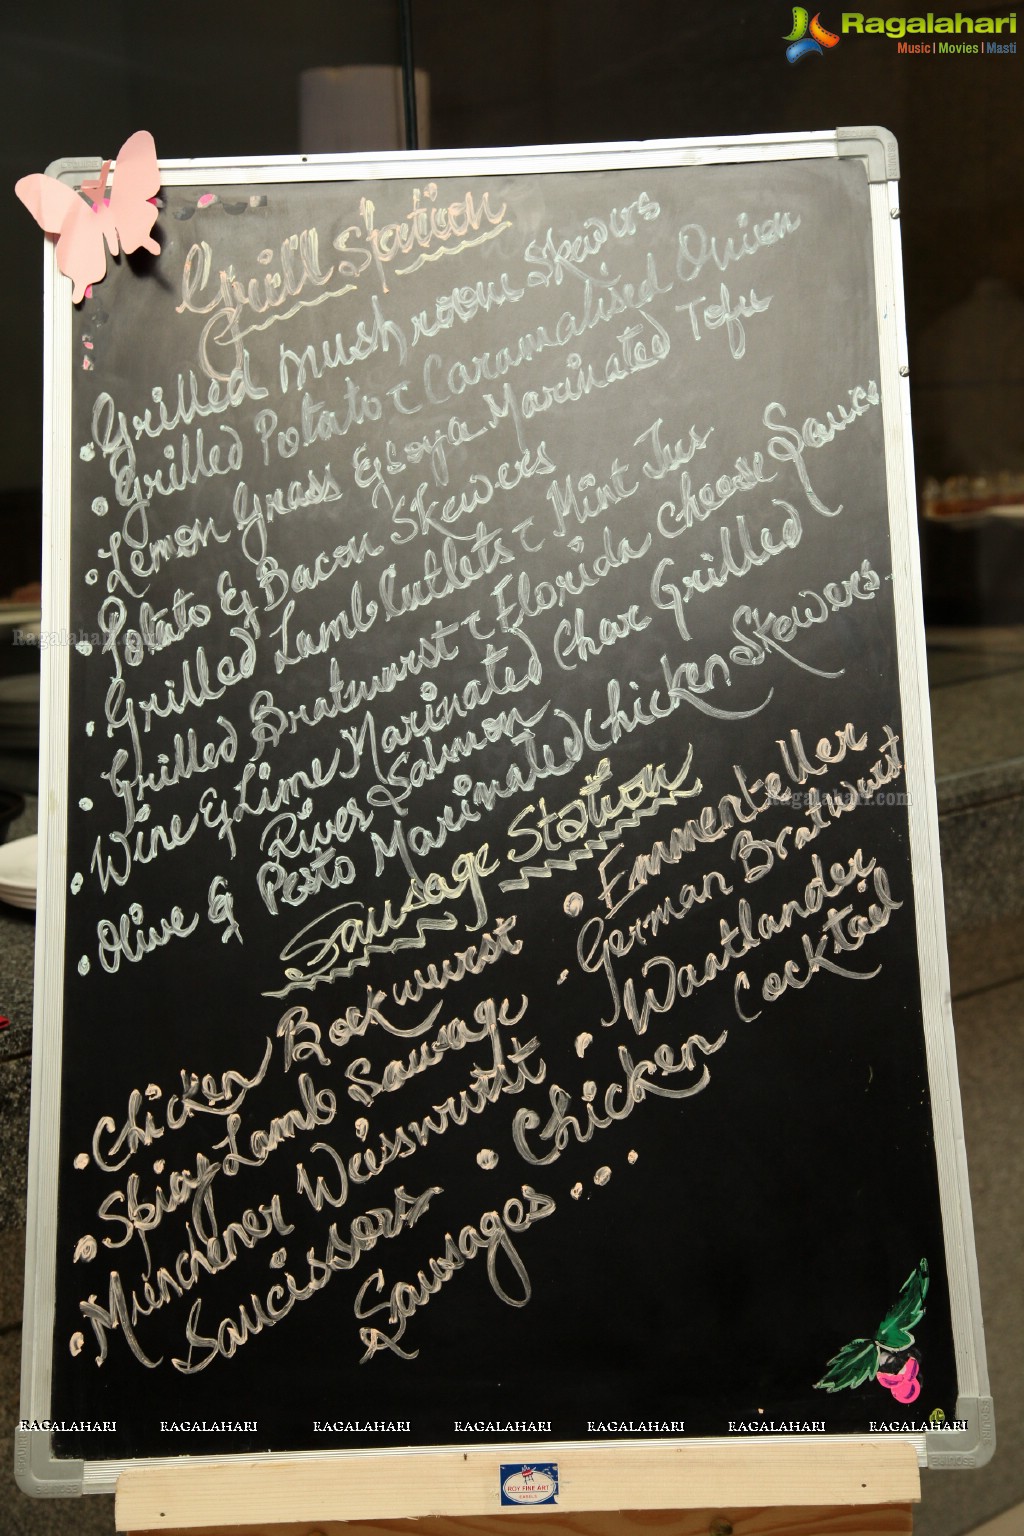 Ragalahari
Music | Movies | Masti
Grill Station
Grilled Mushroom Skewers
Grilled Potato c Caramalised Onion
Lemon Grass & Soya Marinated Tofu
Potato & Bacon Skewers
Grilled Lamb Cutlets c Mint Jus
Grilled Bratwurst c Florida Cheese Sauce
Wine & Lime Marinated Char Grilled
River Salmon
Olive & Pesto Marinated Chicken Skewers
Ragalahari.com
Ragalahari.com
Sausage Station
Chicken Bockwurst
Spicy Lamb Sausage
Muenchener Weisswurst
Saucissers
Emmenteller
German Bratwurst
Wautlander
Chicken Cocktail
Sausages...
RAGALAHARI RAGALAHARI RAGALAHARI RAGALAHARI RAGALAHARI RAGALAHARI RAGALAHARI
ROY FINE ART